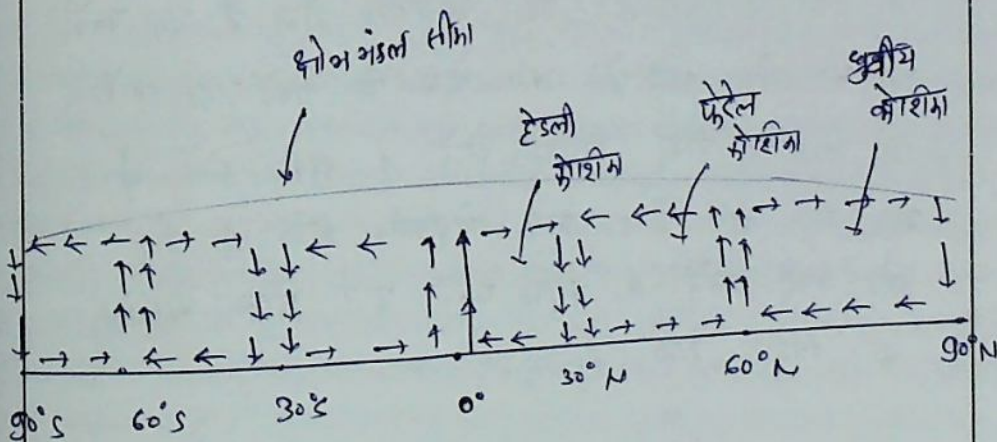 क्षोभ मंडल सीमा
हेडली
कोशिका
फेरेल
कोशिका
ध्रुवीय
कोशिका
90°S 60°S 30°S 0° 30°N 60°N 90°N